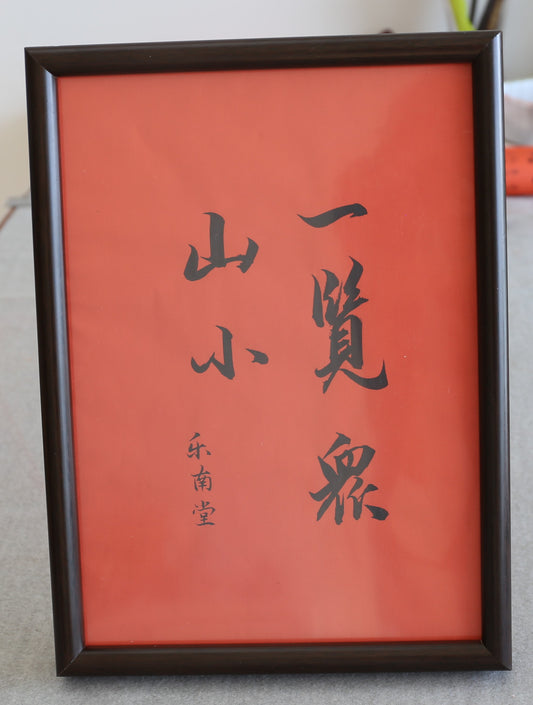 一覽衆
山小
乐南堂